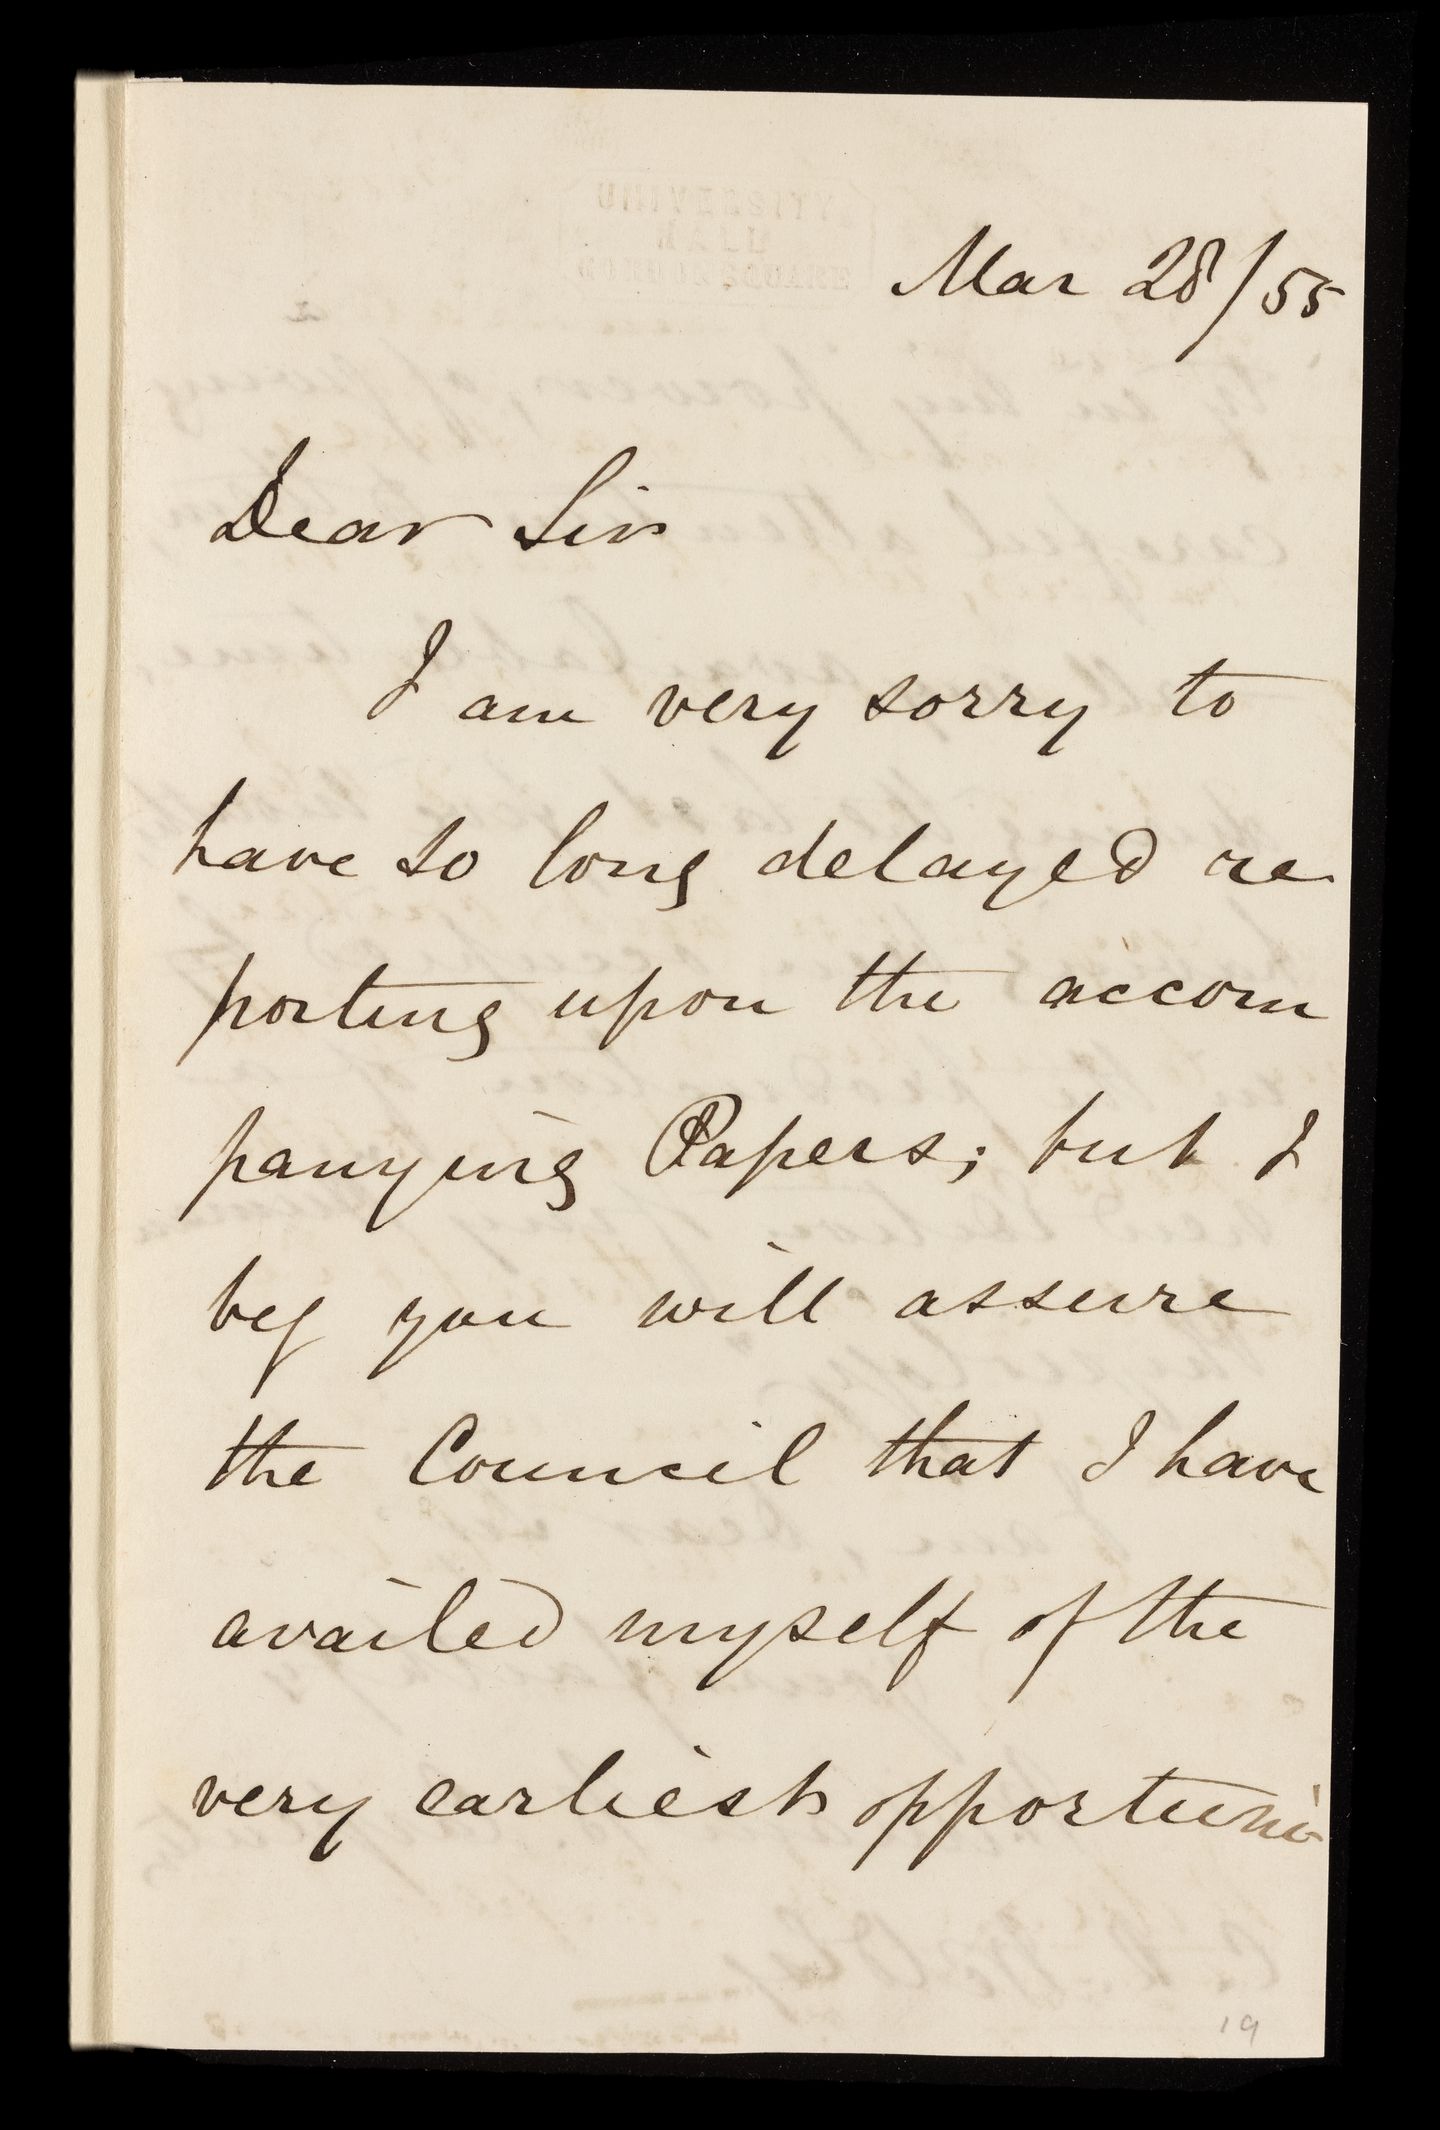 UNIVERSITY
HALL
Mar 28/55
Dear Sir
I am very sorry to
have so long delayed re
porting upon the accom
panying Papers; but I
beg you will assure
the Council that I have
availed myself of the
very earliest opportuni-
19